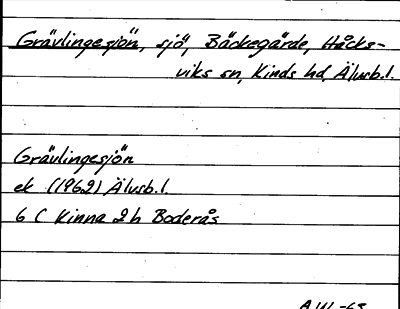 Grävlingesjön, sjö, Bäckegärde, Håcks-
viks sn, Kinds hd, Älvsb.l.
Grävlingesjön
ek (1962) Älvsb.l.
6 C Kinna 2h Boderås